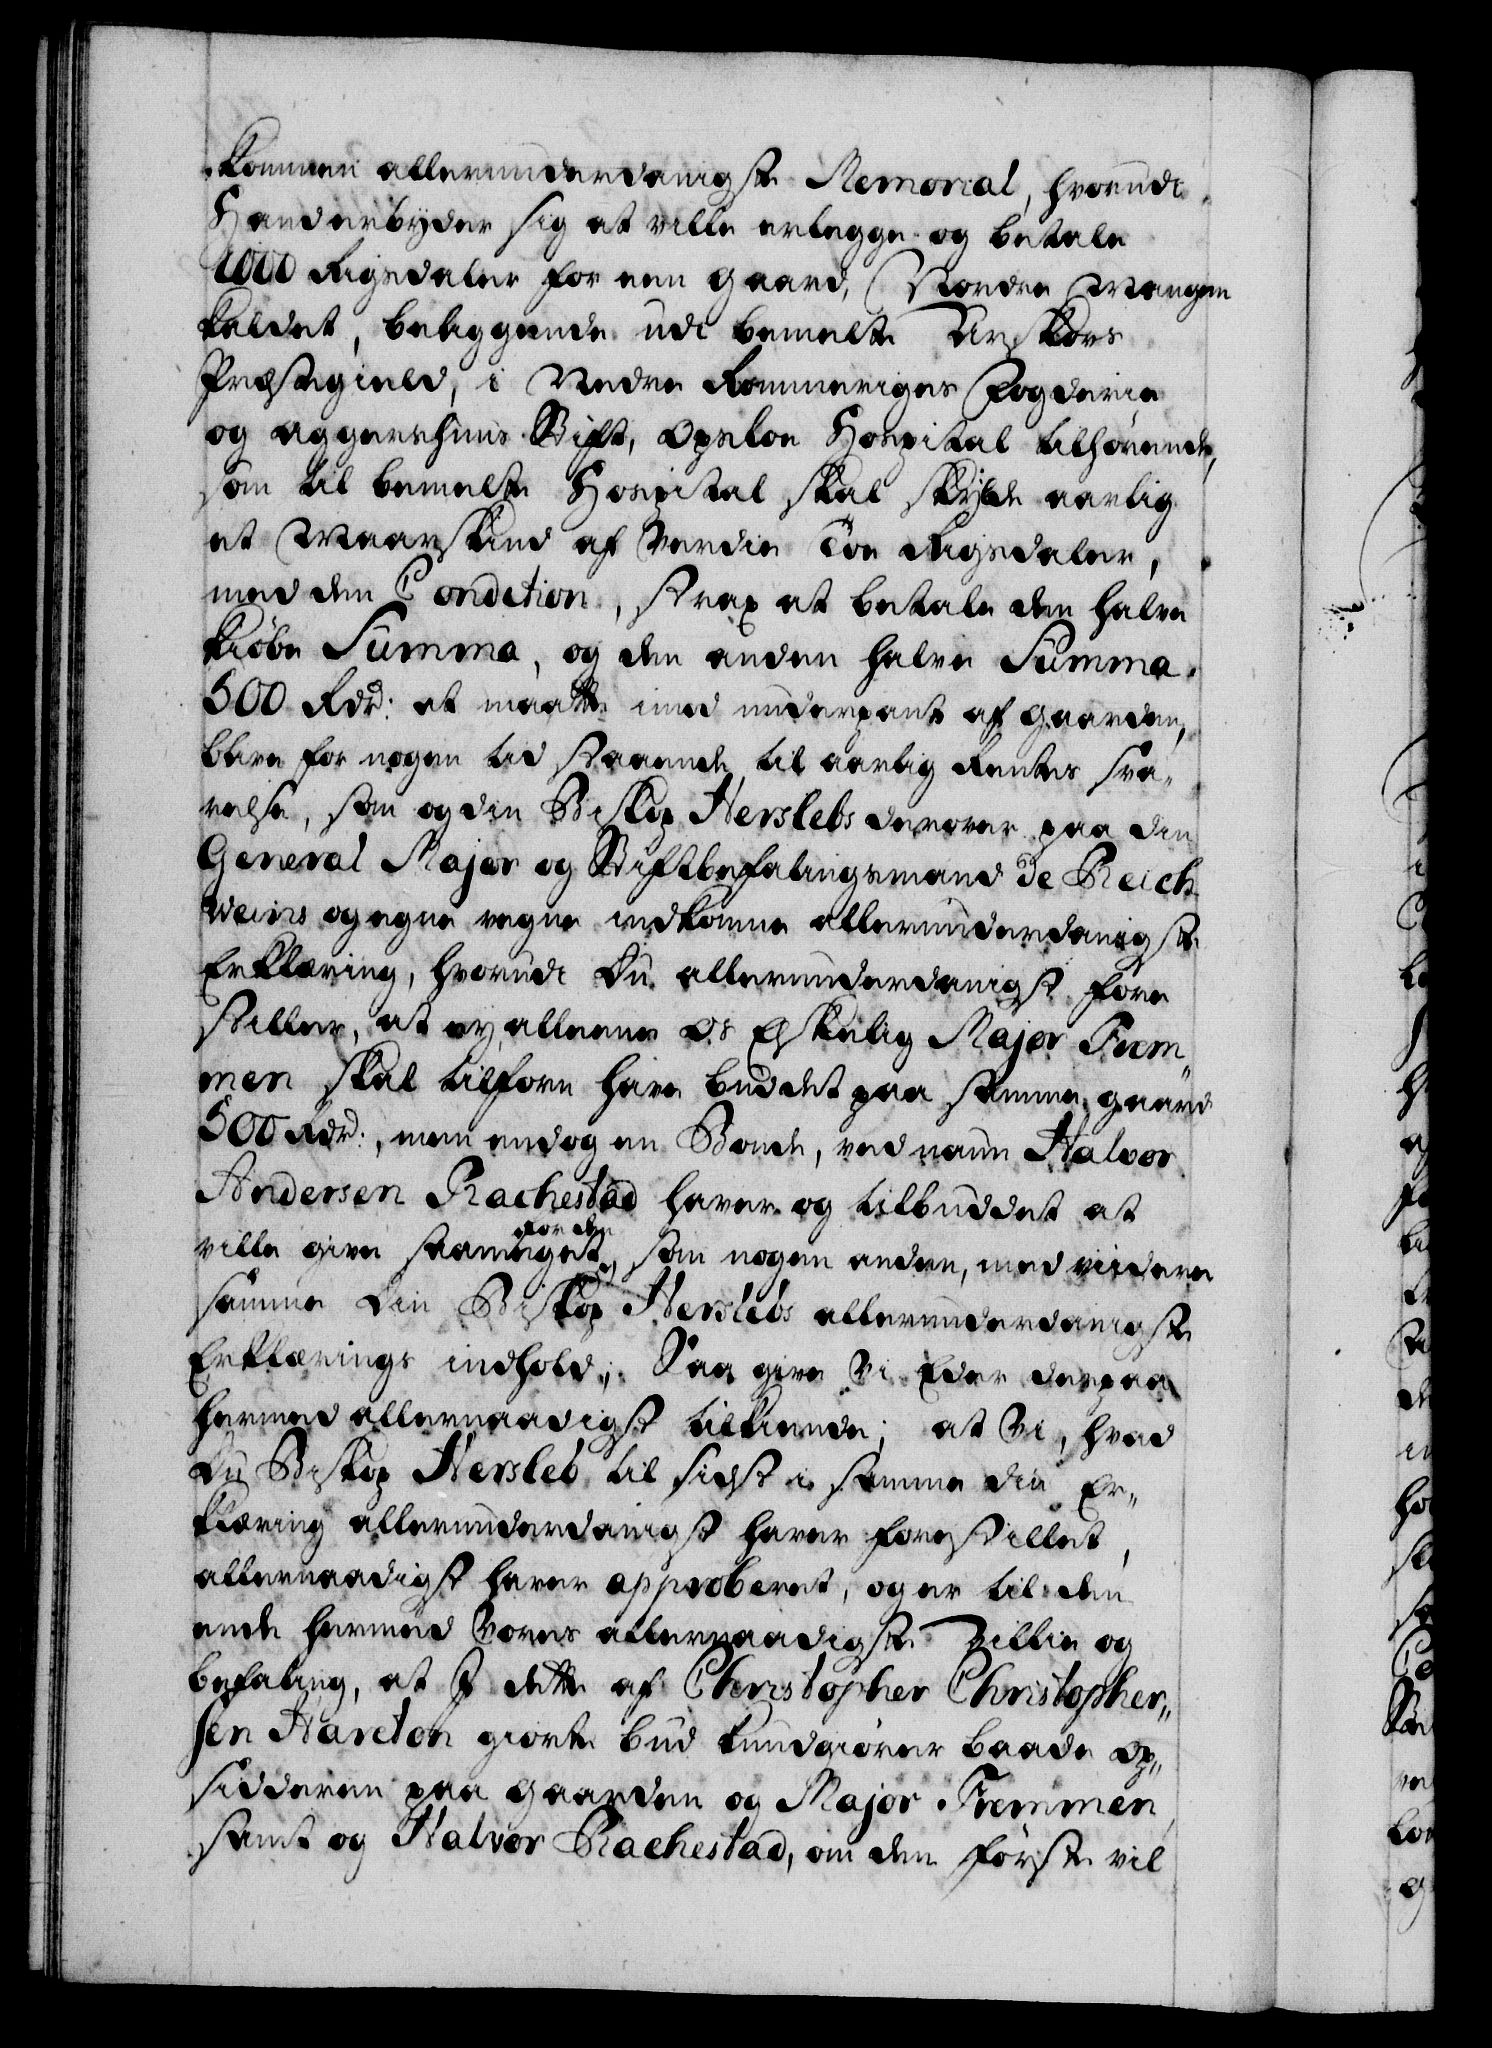 kommen allerunderdanigste Memorial, hvorudi
Hand erbyder sig at ville erlegge og betale
1000 Rigsdaler for een Gaard, Nordre Mangen
kaldet, beliggende udi bemelte Urskovs
Præstegield, i Nedre Rommeriges Fogderie
og Aggershuus Stift, Opsloe Hospital tilhørende,
som til bemelte Hospital skal skylde aarlig
et Maarskind af Verdie Toe Rigsdaler,
med den Condition, strax at betale den halve
Kiøbe Summa, og den anden halve Summa
500 Rdr: at maatte imod underpant af Gaarden,
blive for nogen tid staaende til aarlig Rentes sva-
relse, som og din Biskop Herslebs derover paa din
General Major og Stiftbefalingsmand de Reich-
weins og egne vegne indkomne allerunderdanigste
Erklæring, hvorudi du allerunderdanigst fore
stiller, at ey alleene Os Elskelig Major Frem-
men skal tilforn have buddet paa samme gaard
500 Rdr:, men endog en Bonde, ved navn Halvor
Andersen Rachestad haver og tilbuddet at
ville give saameget for den, som nogen anden, med viidere
samme din Biskop Herslebs allerunderdanigste
Erklærings indhold; Saa give Vi Eder derpaa
hermed allernaadigst tilkiende; at Vi, hvad
du Biskop Hersleb til sidst i samme din Er-
klæring allerunderdanigst haver forestillet,
allernaadigst haver approberet, og er til den
ende hermed Vores allernaadigste Villie og
befaling, at I dette af Christopher Christopher-
sen Hareton giorte bud kundgiører baade Op-
sidderen paa Gaarden og Major Fremmen,
samt og Halvor Rachestad, om den første vil